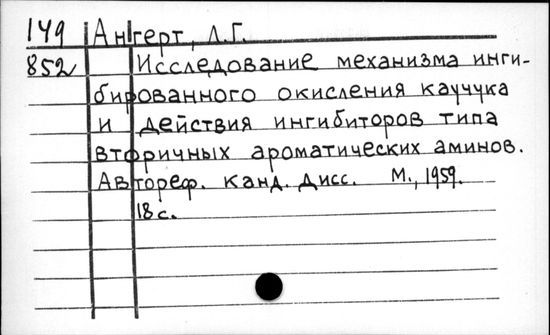 149 Ангерт, Л.Г.
852 Исследование механизма инги-
бированного окисления каучука
и действия ингибиторов типа
вторичных ароматических аминов.
Автореф. канд. дисс. М., 1959.
18 с.